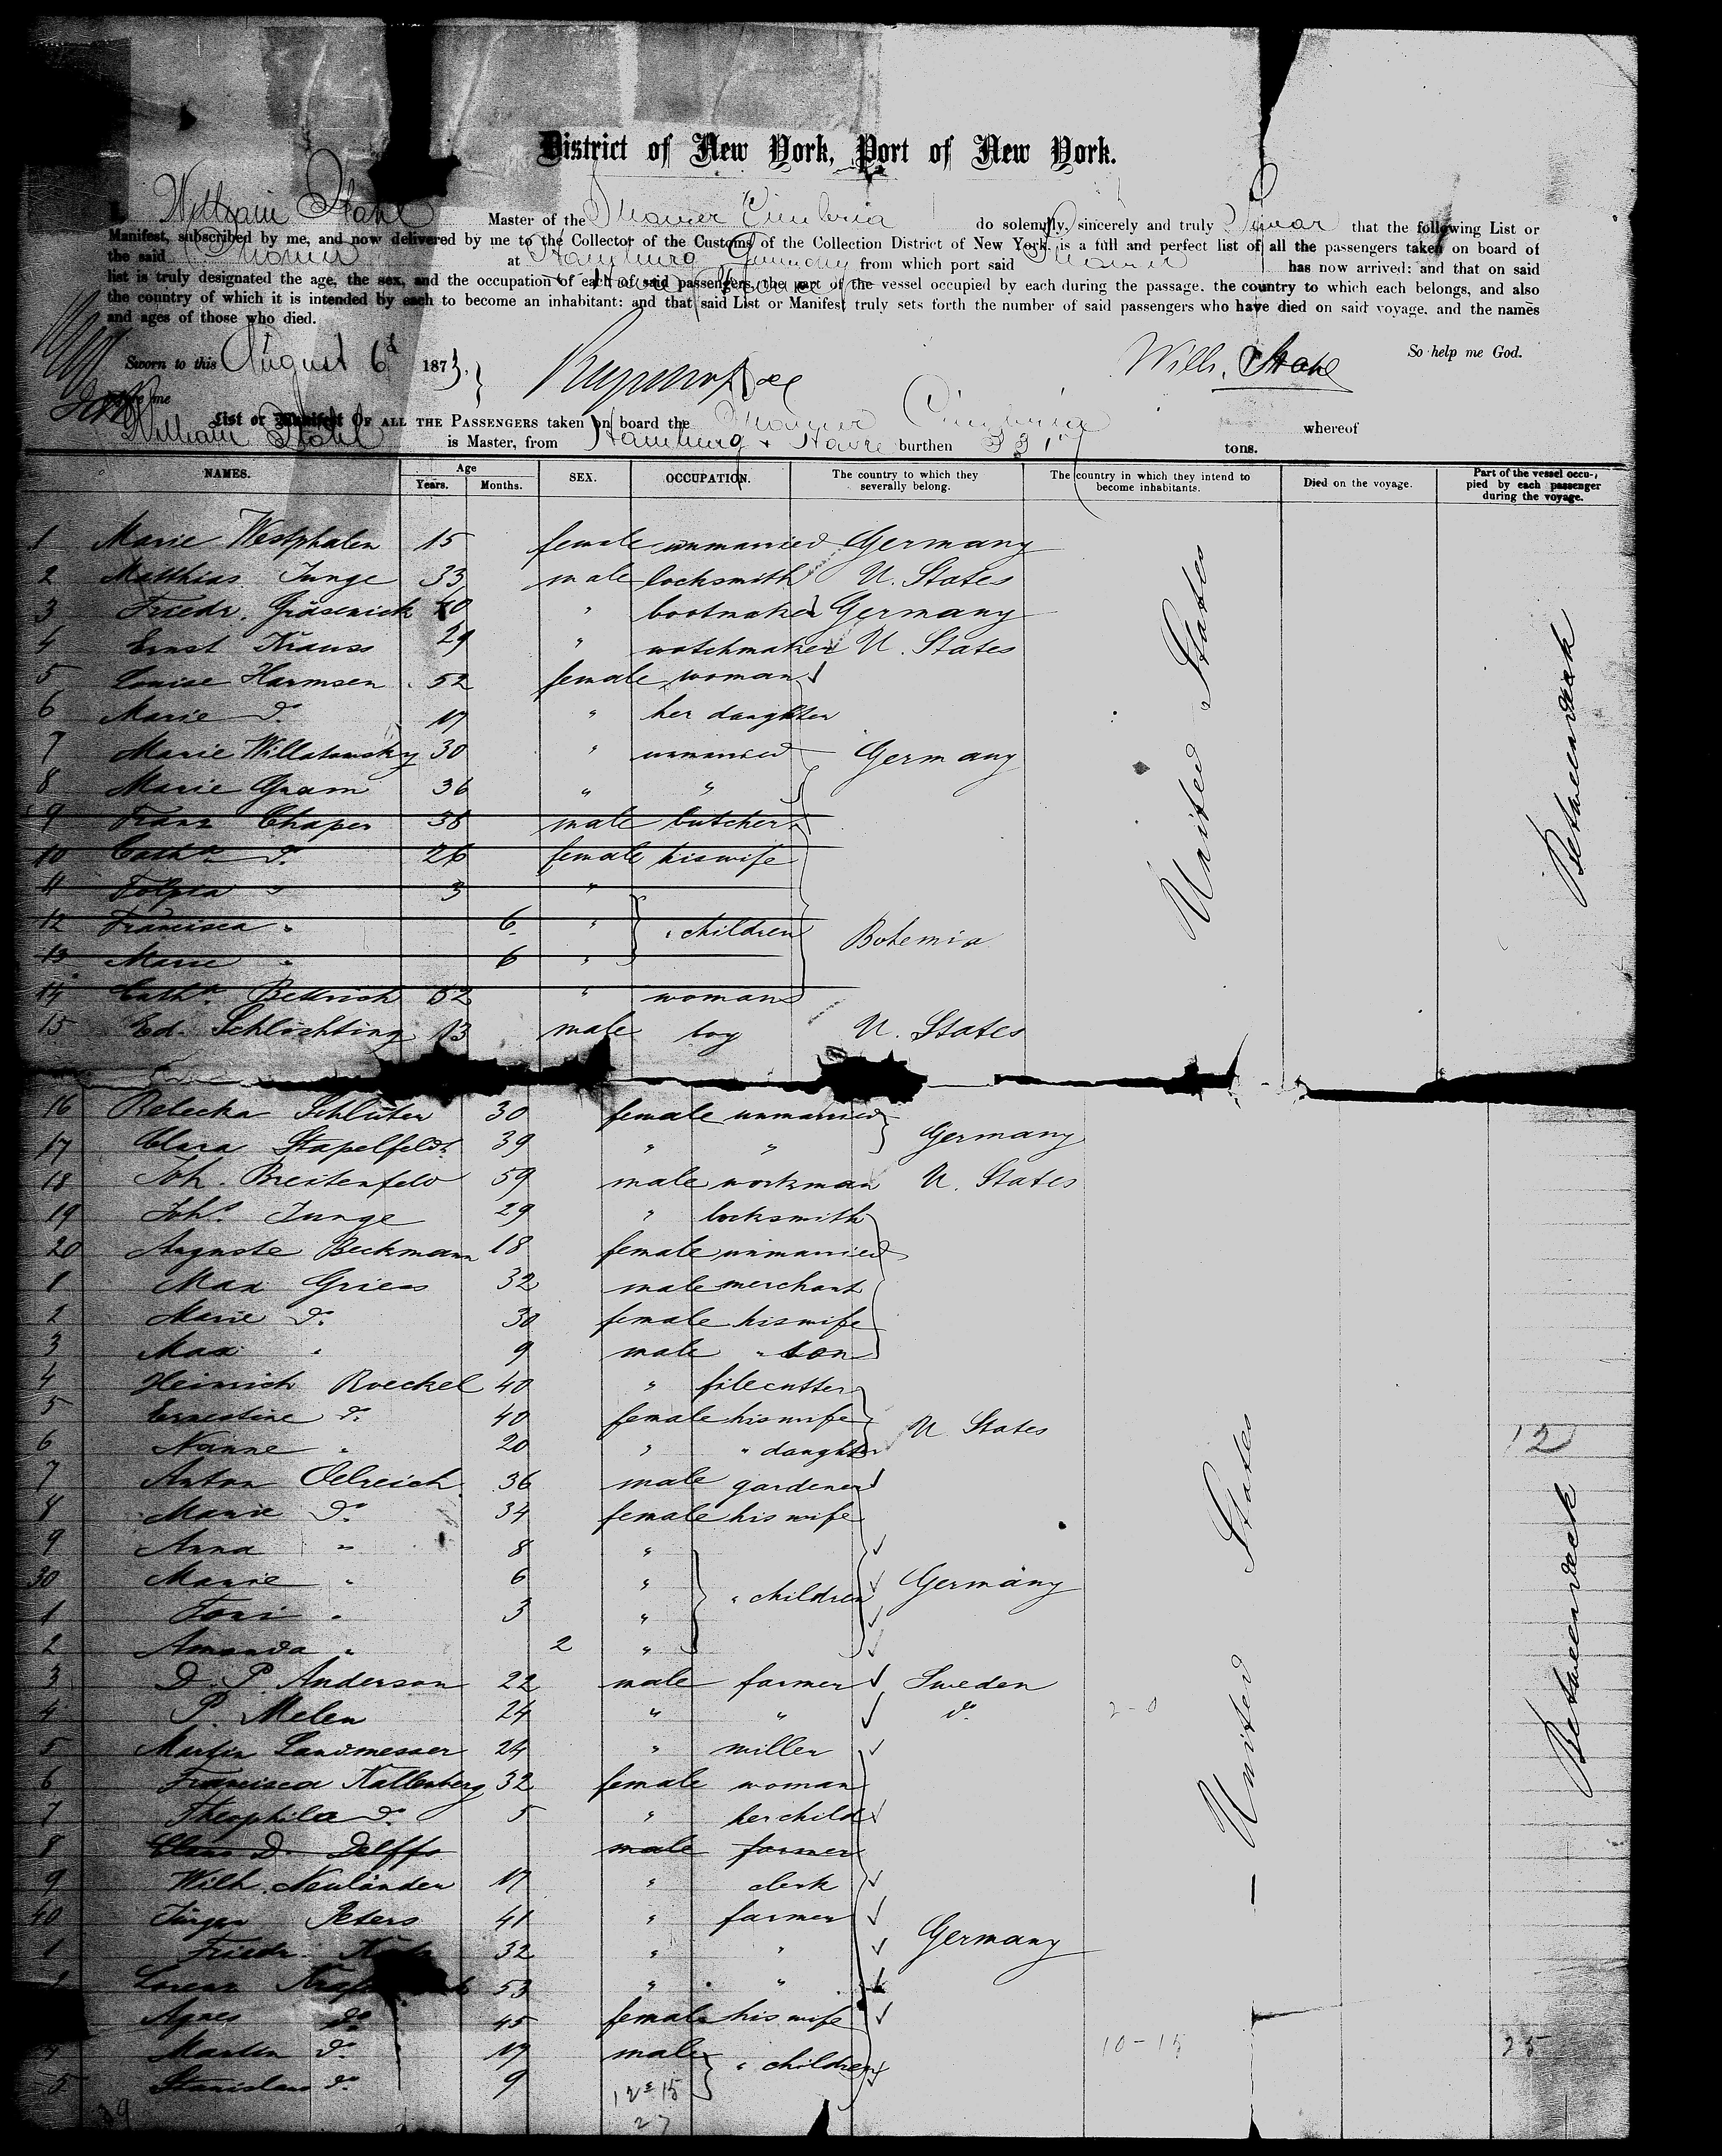 District of New York, Port of New York.
I, William Stahl Master of the Steamer Cimbria do solemnly, sincerely and truly Swear that the following List or
Manifest, subscribed by me, and now delivered by me to the Collector of the Customs of the Collection District of New York, is a full and perfect list of all the passengers taken on board of
the said Steamer at Hamburg Germany from which port said Steamer has now arrived: and that on said
list is truly designated the age, the sex, and the occupation of each of said passengers, the part of the vessel occupied by each during the passage, the country to which each belongs, and also
the country of which it is intended by each to become an inhabitant: and that said List or Manifest truly sets forth the number of said passengers who have died on said voyage, and the names
and ages of those who died.
So help me God.
Sworn to this August 6d 1873. Willi. Stahl
before me
List or Manifest OF ALL THE PASSENGERS taken on board the Steamer Cimbria whereof
William Stahl is Master, from Hamburg + Havre burthen tons.
NAMES. Age Years. Months. SEX. OCCUPATION. The country to which they severally belong. The country in which they intend to become inhabitants. Died on the voyage. Part of the vessel occupied by each passenger during the voyage.
1 Marie Westphalen 15 female unmarried Germany
2 Matthias Junge 33 male locksmith U. States
3 Friedr. Gräsenick 40 " bootmaker Germany
4 Ernst Krauss 29 " watchmaker U. States
5 Louise Harmsen 52 female woman
6 Marie do 17 " her daughter
7 Marie Willatowsky 30 " unmarried Germany
8 Marie Gram 36 " "
9 Franz Chaper 38 male butcher
10 Catha do 26 female his wife
11 3 "
12 Francisca " 6 " " children Bohemia
13 Marie " 6 "
14 Catha Bettrich 52 " woman
15 Ed. Schlichting 13 male boy U. States
United States
Betweendeck
16 Rebecka Schlüter 30 female unmarried
17 Clara Stapelfeldt 39 " " Germany
18 Joh. Breitenfeld 59 male workman U. States
19 Johs Junge 29 " locksmith
20 Auguste Beckmann 18 female unmarried
1 Max Griess 32 male merchant
2 Marie do 30 female his wife
3 Max " 9 male " son
4 Heinrich Roeckel 40 " filecutter
5 Ernestine do 40 female his wife U States
6 Nanne " 20 " " daughter 12
7 Anton Oelreich 36 male gardener
8 Marie do 34 female his wife
9 Anna " 8 "
30 Marie " 6 " " children Germany
1 Toni " 3 "
2 Amanda " 2 "
3 D. P. Anderson 22 male farmer Sweden
4 P. Melen 24 " " do 2-0
5 Martin Landmesser 24 " miller
6 Francisca Kallenberg 32 female woman
7 Theophila do 5 " her child
8 Claus D. Delffs male farmer
9 Wilh. Neuländer 17 " clerk
40 Jürgen Peters 41 " farmer
1 Friedr. 32 " " Germany
2 Lorenz 53 " "
Agnes do 45 female his wife
4 Martin do 17 male " children 10-15 25
5 Stanislaus do 9
United States
Betweendeck
12 = 15
27
39